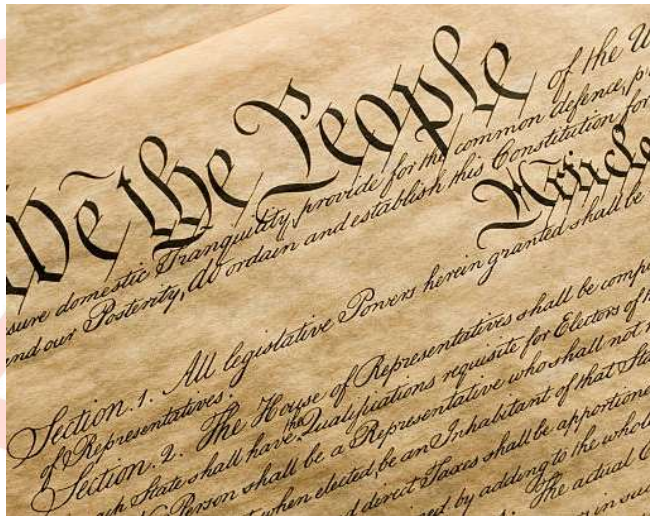 We the People of the U
sure domestic Tranquility, provide for the common defence, p
and our Posterity, do ordain and establish this Constitution for
Article
Section. 1. All legislative Powers herein granted shall be
of Representatives.
Section. 2. The House of Representatives shall be comp
ach State shall have the Qualifications requisite for Electors of th
Person shall be a Representative who shall not
when elected, be an Inhabitant of that Stat
and direct Taxes shall be apportione
by adding to the whol
The actual
in suc